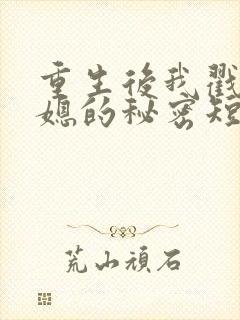 重生後我戳
媳的秘密短
荒山頑石